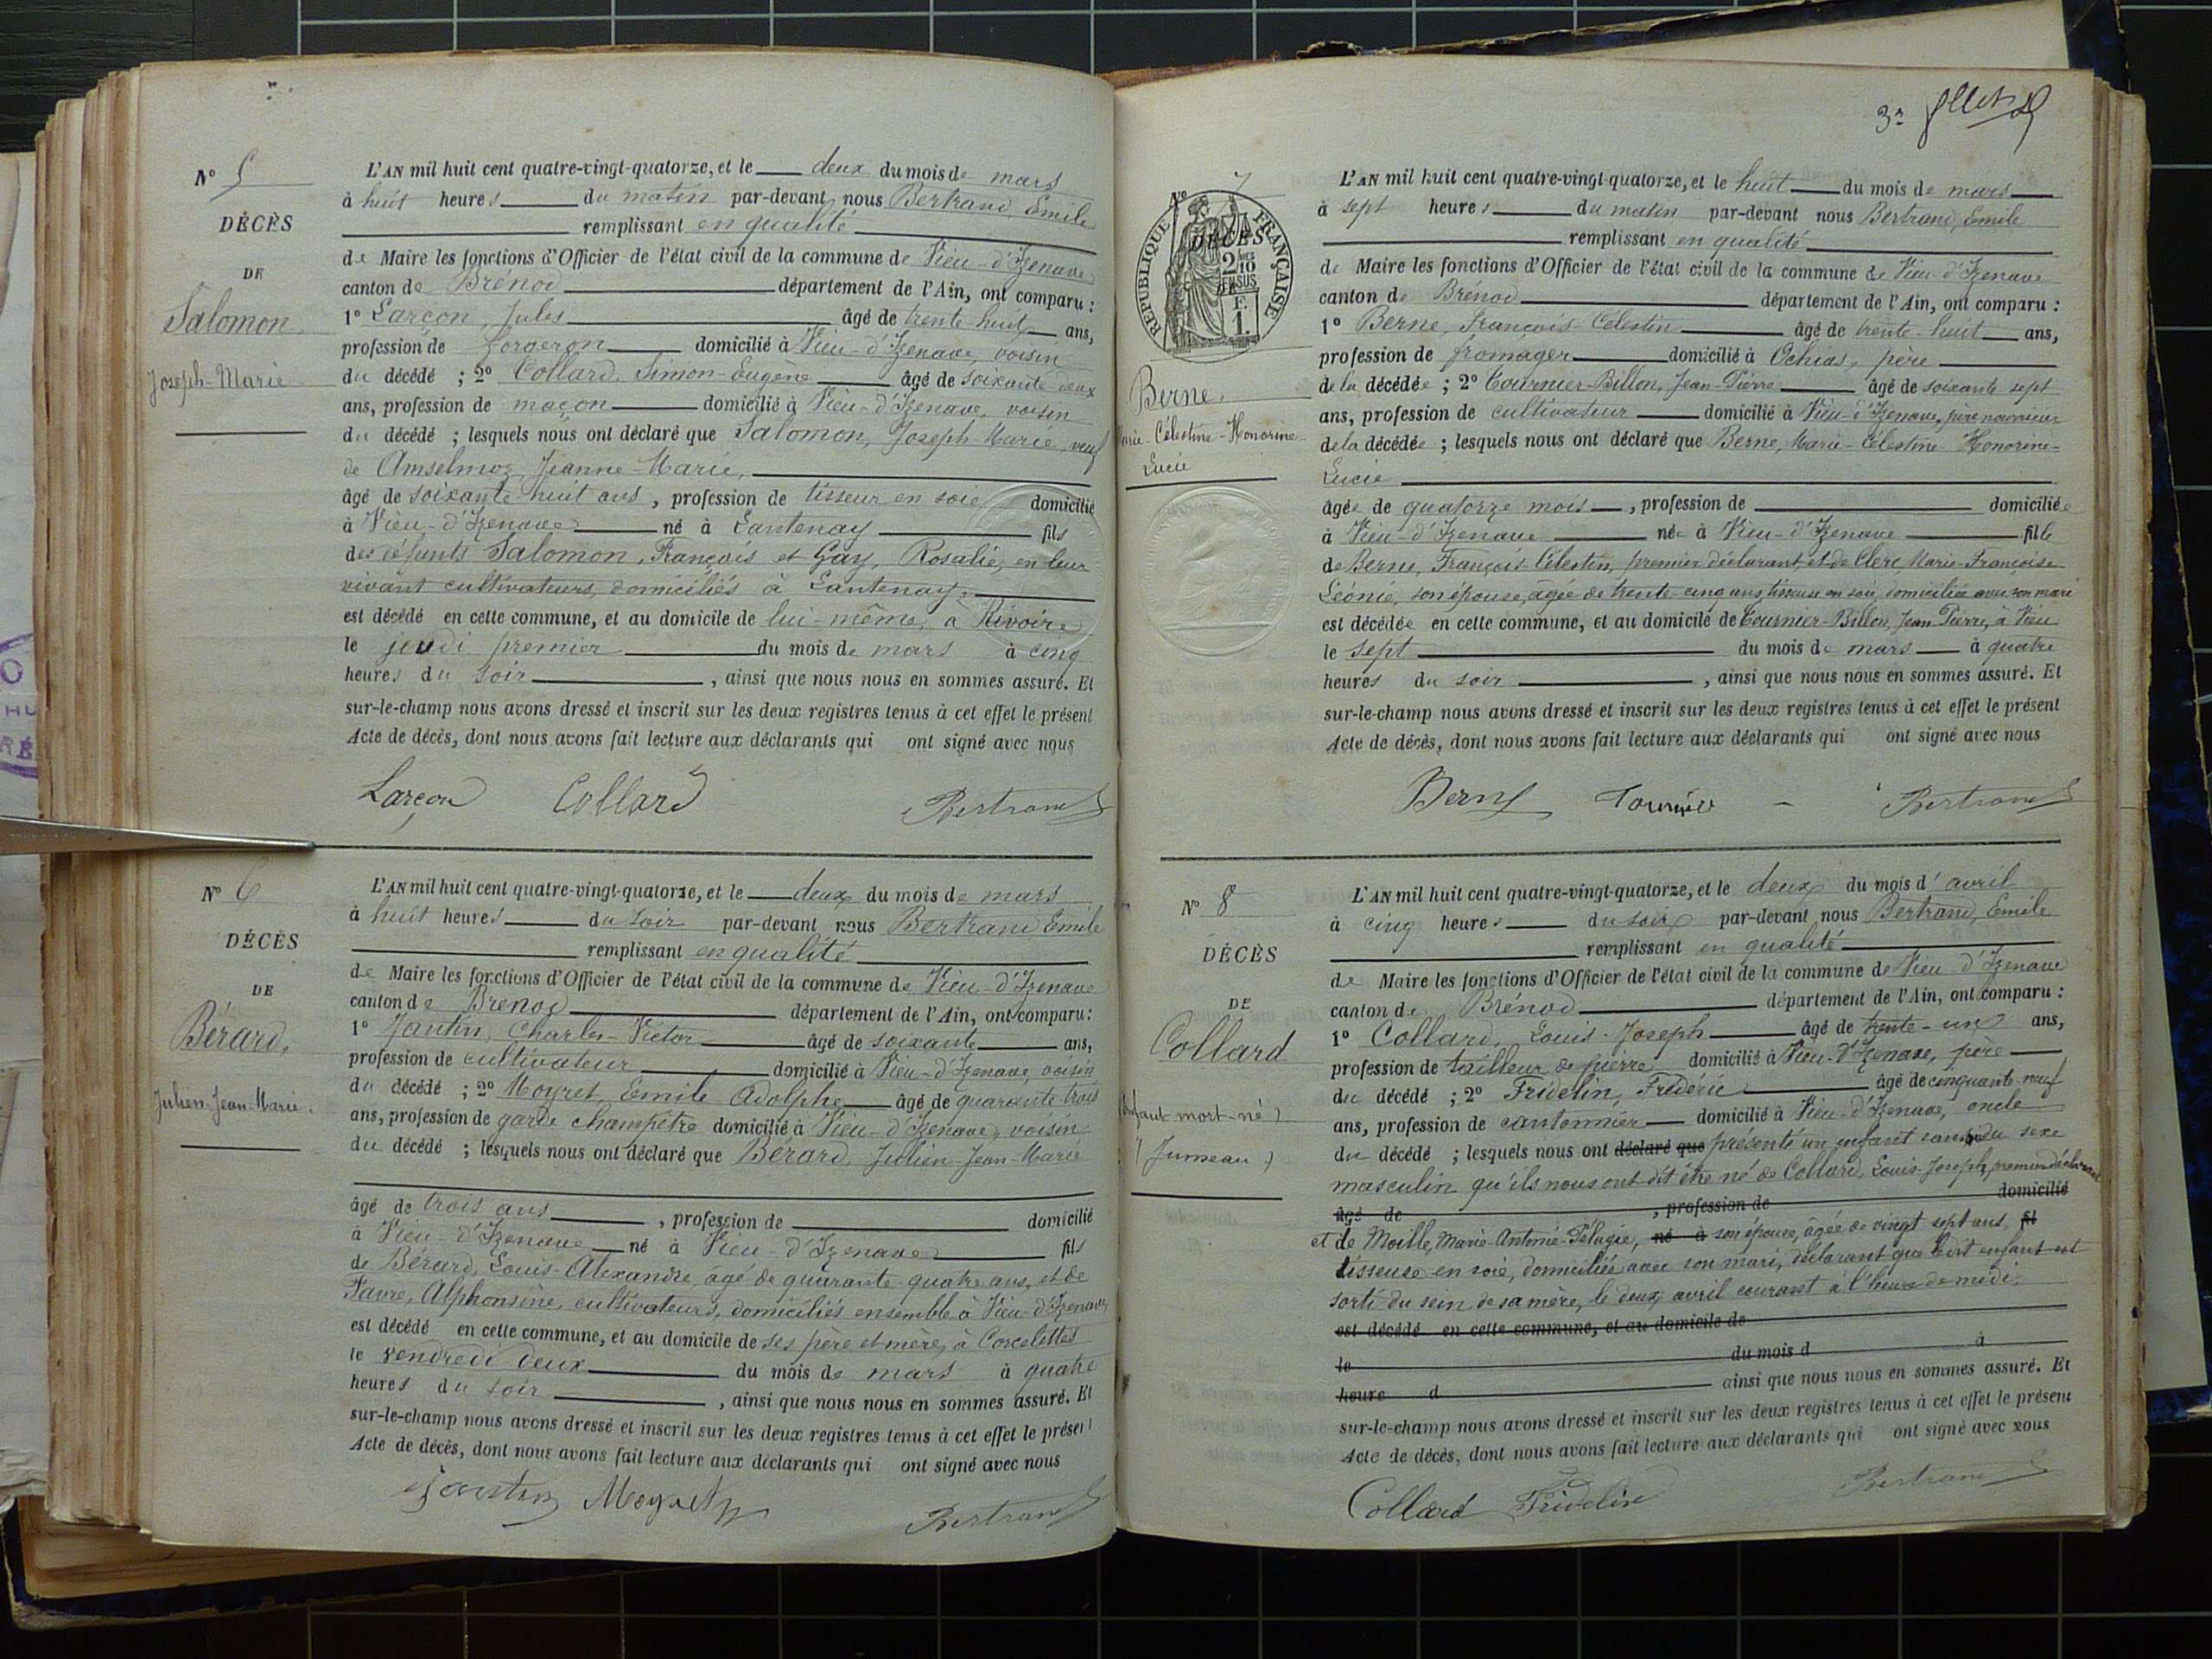 N° 5
DÉCÈS
DE
Salomon
Joseph-Marie
L'AN mil huit cent quatre-vingt-quatorze, et le deux du mois de mars
à huit heures du matin par-devant nous Bertrand, Emile
remplissant en qualité
de Maire les fonctions d'Officier de l'état civil de la commune de Vieu-d'Izenave
canton de Brénod département de l'Ain, ont comparu :
1° Larçon, Jules âgé de trente-huit ans,
profession de forgeron domicilié à Vieu-d'Izenave, voisin
du décédé ; 2° Collard, Simon-Eugène âgé de soixante-deux
ans, profession de maçon domicilié à Vieu-d'Izenave, voisin
du décédé ; lesquels nous ont déclaré que Salomon, Joseph-Marie, veuf
de Amselmoz, Jeanne-Marie,
âgé de soixante-huit ans, profession de tisseur en soie domicilié
à Vieu-d'Izenave né à Lantenay fils
des défunts Salomon, François et Gay, Rosalie, en leur
vivant cultivateurs, domiciliés à Lantenay,
est décédé en cette commune, et au domicile de lui-même, à Rivoire
le jeudi premier du mois de mars à cinq
heures du soir, ainsi que nous nous en sommes assuré. Et
sur-le-champ nous avons dressé et inscrit sur les deux registres tenus à cet effet le présent
Acte de décès, dont nous avons fait lecture aux déclarants qui ont signé avec nous
Larçon Collard Bertrand
N° 6
DÉCÈS
DE
Bérard,
Julien-Jean-Marie.
L'AN mil huit cent quatre-vingt-quatorze, et le deux du mois de mars
à huit heures du soir par-devant nous Bertrand, Emile
remplissant en qualité
de Maire les fonctions d'Officier de l'état civil de la commune de Vieu-d'Izenave
canton de Brenod département de l'Ain, ont comparu :
1° Jantin, Charles-Victor âgé de soixante ans,
profession de cultivateur domicilié à Vieu-d'Izenave, voisin
du décédé ; 2° Moyret, Emile Adolphe âgé de quarante-trois
ans, profession de garde champêtre domicilié à Vieu-d'Izenave, voisin
du décédé ; lesquels nous ont déclaré que Bérard, Julien-Jean-Marie
âgé de trois ans, profession de domicilié
à Vieu-d'Izenave né à Vieu-d'Izenave fils
de Bérard, Louis-Alexandre, âgé de quarante-quatre ans, et de
Favre, Alphonsine, cultivateurs, domiciliés ensemble à Vieu-d'Izenave,
est décédé en cette commune, et au domicile de ses père et mère, à Corcelettes
le vendredi deux du mois de mars à quatre
heures du soir, ainsi que nous nous en sommes assuré. Et
sur-le-champ nous avons dressé et inscrit sur les deux registres tenus à cet effet le présent
Acte de décès, dont nous avons fait lecture aux déclarants qui ont signé avec nous
Jantin Moyret Bertrand
N° 7
RÉPUBLIQUE FRANÇAISE
DÉCÈS
2/10
EN SUS
1 F.
Berne,
Marie-Célestine-Honorine-
Lucie
L'AN mil huit cent quatre-vingt-quatorze, et le huit du mois de mars
à sept heures du matin par-devant nous Bertrand, Emile
remplissant en qualité
de Maire les fonctions d'Officier de l'état civil de la commune de Vieu-d'Izenave
canton de Brénod département de l'Ain, ont comparu :
1° Berne, François-Célestin âgé de trente-huit ans,
profession de fromager domicilié à Ochias, père
de la décédée ; 2° Tournier-Billon, Jean-Pierre âgé de soixante sept
ans, profession de cultivateur domicilié à Vieu-d'Izenave, père nourricier
de la décédée ; lesquels nous ont déclaré que Berne, Marie-Célestine-Honorine-
Lucie
âgée de quatorze mois, profession de domiciliée
à Vieu-d'Izenave née à Vieu-d'Izenave fille
de Berne, François-Célestin, premier déclarant, et de Clerc, Marie-Françoise
Léonie, son épouse, âgée de trente cinq ans, tisseuse en soie, domiciliée avec son mari
est décédée en cette commune, et au domicile de Tournier-Billon, Jean-Pierre, à Vieu
le sept du mois de mars à quatre
heures du soir, ainsi que nous nous en sommes assuré. Et
sur-le-champ nous avons dressé et inscrit sur les deux registres tenus à cet effet le présent
Acte de décès, dont nous avons fait lecture aux déclarants qui ont signé avec nous
Berne Tournier Bertrand
N° 8
DÉCÈS
DE
Collard
(Enfant mort-né)
(Jumeau)
L'AN mil huit cent quatre-vingt-quatorze, et le deux du mois d'avril
à cinq heures du soir par-devant nous Bertrand, Emile
remplissant en qualité
de Maire les fonctions d'Officier de l'état civil de la commune de Vieu-d'Izenave
canton de Brénod département de l'Ain, ont comparu :
1° Collard, Louis-Joseph âgé de trente-un ans,
profession de tailleur de pierre domicilié à Vieu-d'Izenave, père
du décédé ; 2° Fridelin, Frédéric âgé de cinquante-neuf
ans, profession de cantonnier domicilié à Vieu-d'Izenave, oncle
du décédé ; lesquels nous ont déclaré que présenté un enfant sans vie du sexe
masculin qu'ils nous ont dit être né de Collard, Louis-Joseph, premier déclarant
âgé de , profession de domicilié
et de Moille, Marie-Antonie-Pélagie, né à son épouse, âgée de vingt sept ans, fil
tisseuse en soie, domiciliée avec son mari, déclarant que ledit enfant est
sorti du sein de sa mère, le deux avril courant à l'heure de midi,
est décédé en cette commune, et au domicile de
le du mois d à
heure d ainsi que nous nous en sommes assuré. Et
sur-le-champ nous avons dressé et inscrit sur les deux registres tenus à cet effet le présent
Acte de décès, dont nous avons fait lecture aux déclarants qui ont signé avec nous
Collard Fridelin Bertrand